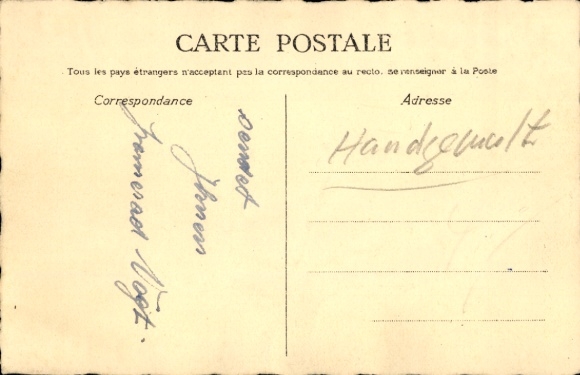 CARTE POSTALE
Tous les pays étrangers n'acceptent pas la correspondance au recto. se renseigner à la Poste
Correspondance
Adresse
sendet
Ihnen
Kamerad Vogt.
Handgemalt